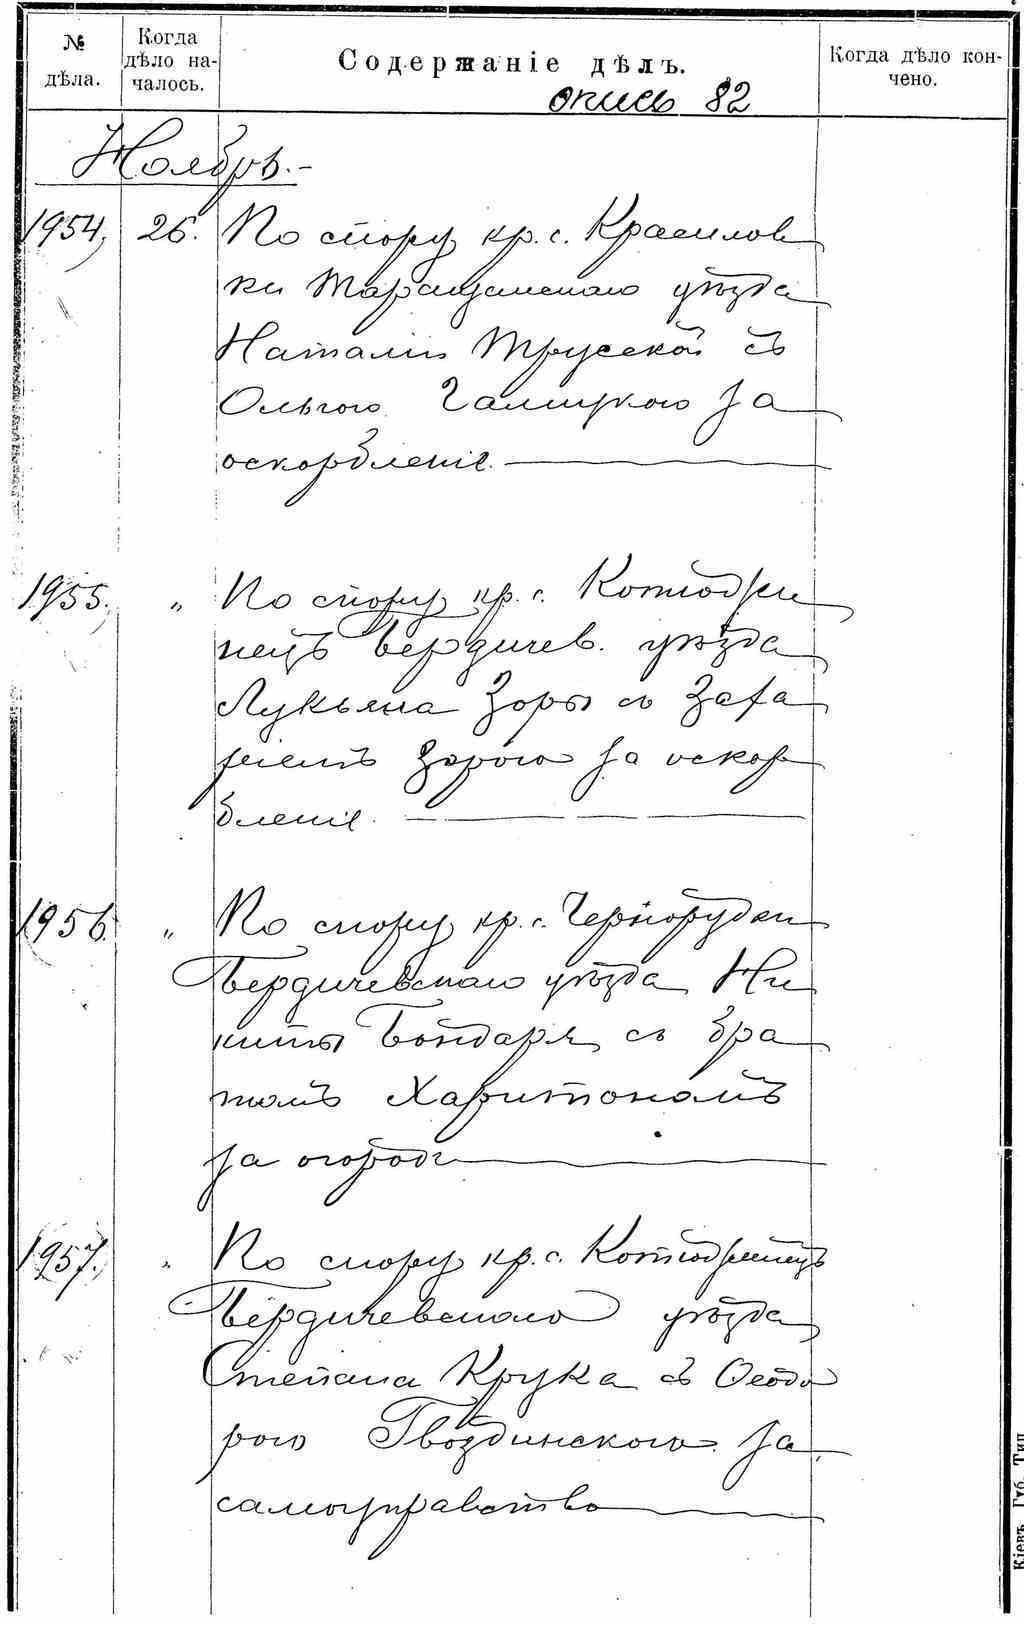 № дѣла.
Когда дѣло началось.
Содержаніе дѣлъ.
Когда дѣло кончено.
опись 82
Ноябрь.-
1954, 26. По спору кр. с. Красилов
ки Таращанскаго уѣзда
Наталіи Трусской съ
Ольгою Галицкою за
оскорбленіе.
1955. " По спору кр. с. Котюжи
нецъ Бердичев. уѣзда
Лукьяна Зоры съ Заха
ріемъ Зорою за оскор
бленіе.
1956. " По спору кр. с. Чернорудки
Бердичевскаго уѣзда Ни
киты Бондаря съ бра
томъ Харитономъ
за огородъ
1957. " По спору кр. с. Котюжинецъ
Бердичевскаго уѣзда
Степана Крука съ Ѳеодо
рою Гвоздинскою за
самоуправство
Кіевъ. Губ. Тип.